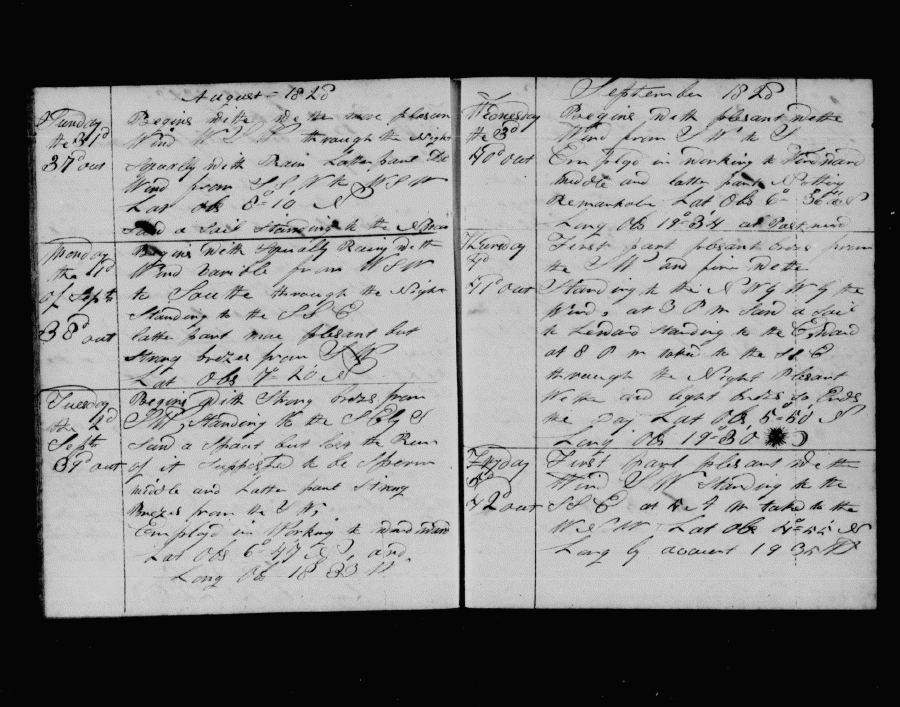 August 1828
Sunday
the 31d
37d out
Begins withe wethe more plesant
Wind W S W through the Night
Squarly with Rain Latter part The
Wind from S S W to W S W
Lat obs 8-10 N
Sand a Sail Standing to the
Monday
the 1d
of Sept
38d out
Begins with Squally Rain with
Wind varible from W S W
to Southe through the Night
Standing to the S S E
latter part more plesant but
Strong brezes from S W
Lat Obs 7-20 N
Tuesday
the 2d
Sept
39d out
Begins with Strong brezes from
SW, Standing to the S E by S
Sand a Spout but lost the Run
of it Supposed to be Sperm
middle and Latter part Strong
Brezes from the S W
Employd in Working to windward
Lat Obs 6-47 N, and
Long Ob 18 33 W
September 1828
Wednesday
the 3d
40d out
Begins with plesant wethe
Wind from S W to S
Employd in working to Windward
middle and latter part Nothing
Remarkable Lat Obs 6-36 N
Long Obs 19-34
Thursday
4d
41d out
First part plesant brezes from
the S W and fine wethe
Standing to the N W by W by the
Wind, at 3 P m Sand a Sail
to Leward Standing to the Estward
at 8 P m takd to the S E
through the Night Plesant
Wethe and light brezes So Ends
the Day Lat Obs 5-50 N
Long Obs 19-30
Fryday
5d
42d out
First part plesant wethe
Wind S W Standing to the
S S E at m takd to the
W N W Lat ob 4-55 N
Long by account 19 35 W